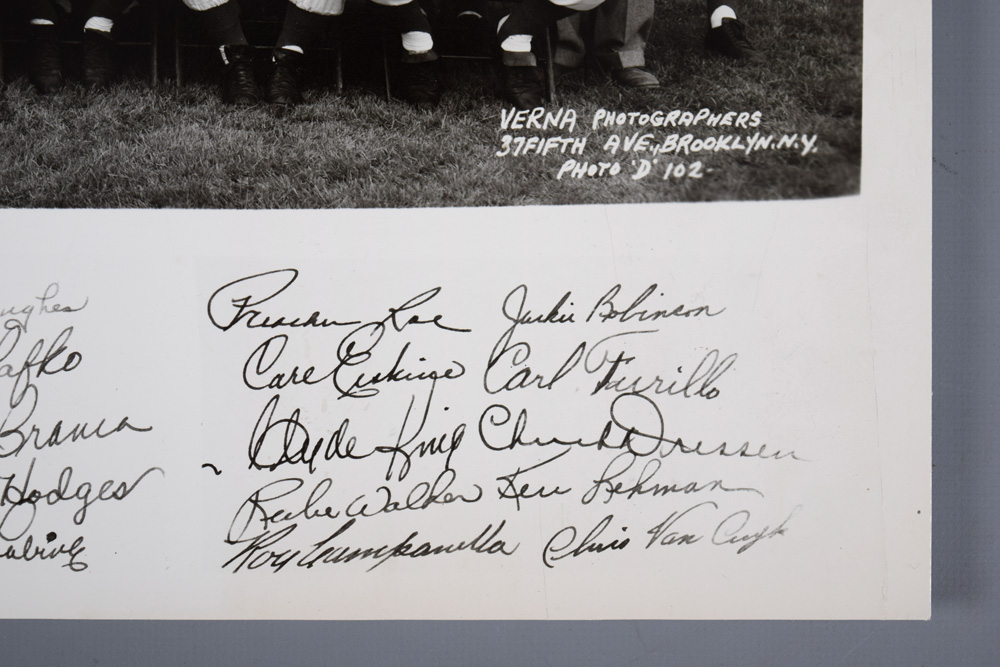 VERNA PHOTOGRAPHERS
37 FIFTH AVE., BROOKLYN. N.Y.
PHOTO 'D' 102-
ughes
Preacher Roe Jackie Robinson
afko
Carl Erskine Carl Furillo
Branca
Clyde King Chuck Dressen
Hodges
Rube Walker Ken Lehman
abine
Roy Campanella Chris Van Cuyk